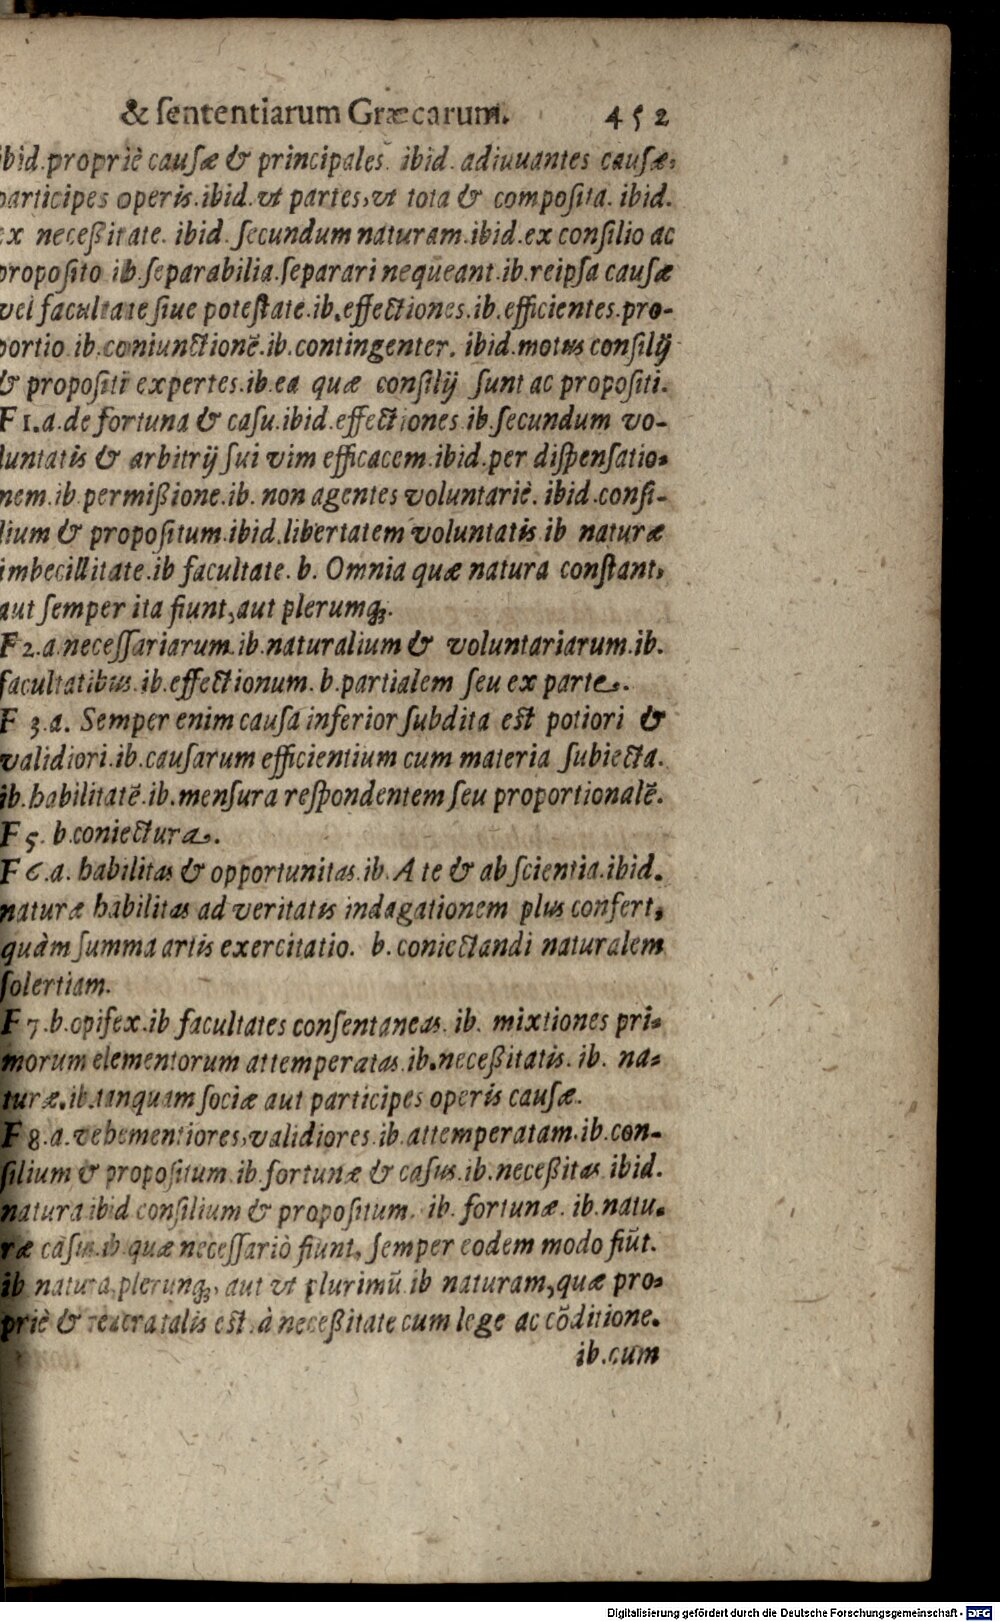 & ſententiarum Græcarum. 452
ibid. propriè cauſæ & principales. ibid. adiuuantes cauſæ,
participes operis. ibid. vt partes, vt tota & compoſita. ibid.
ex neceßitate. ibid. ſecundum naturam. ibid. ex conſilio ac
propoſito ib. ſeparabilia. ſeparari nequeant. ib. reipſa cauſæ
vel facultate ſiue poteſtate. ib. effectiones. ib. efficientes. pro-
portio ib. coniunctionē. ib. contingenter. ibid. motus conſilij
& propoſiti expertes. ib. ea quæ conſilij ſunt ac propoſiti.
F 1. a. de fortuna & caſu. ibid. effectiones ib. ſecundum vo-
luntatis & arbitrij ſui vim efficacem. ibid. per diſpenſatio-
nem. ib permißione. ib. non agentes voluntariè. ibid. conſi-
lium & propoſitum. ibid. libertatem voluntatis ib naturæ
imbecillitate. ib facultate. b. Omnia quæ natura conſtant,
aut ſemper ita fiunt, aut plerumq́;.
F 2. a. neceſſariarum. ib. naturalium & voluntariarum. ib.
facultatibus. ib. effectionum. b. partialem ſeu ex parte.
F 3. a. Semper enim cauſa inferior ſubdita est potiori &
validiori. ib. cauſarum efficientium cum materia ſubiecta.
ib. habilitatē. ib. menſura reſpondentem ſeu proportionalē.
F 5. b. coniectura.
F 6. a. habilitas & opportunitas. ib. A te & ab ſcientia. ibid.
naturæ habilitas ad veritatis indagationem plus confert,
quàm ſumma artis exercitatio. b. coniectandi naturalem
ſolertiam.
F 7. b. opifex. ib facultates conſentaneas. ib. mixtiones pri-
morum elementorum attemperatas. ib. neceßitatis. ib. na-
turæ. ib. tanquam ſociæ aut participes operis cauſæ.
F 8. a. vehementiores, validiores. ib. attemperatam. ib. con-
ſilium & propoſitum. ib. fortunæ & caſus. ib. neceßitas. ibid.
natura ibid conſilium & propoſitum. ib. fortunæ. ib. natu-
ræ caſus. ib. quæ neceſſariò fiunt, ſemper eodem modo fiūt.
ib natura, plerunq́;, aut vt plurimū. ib naturam, quæ pro-
priè & est. à neceßitate cum lege ac cōditione.
ib. cum
Digitalisierung gefördert durch die Deutsche Forschungsgemeinschaft - DFG